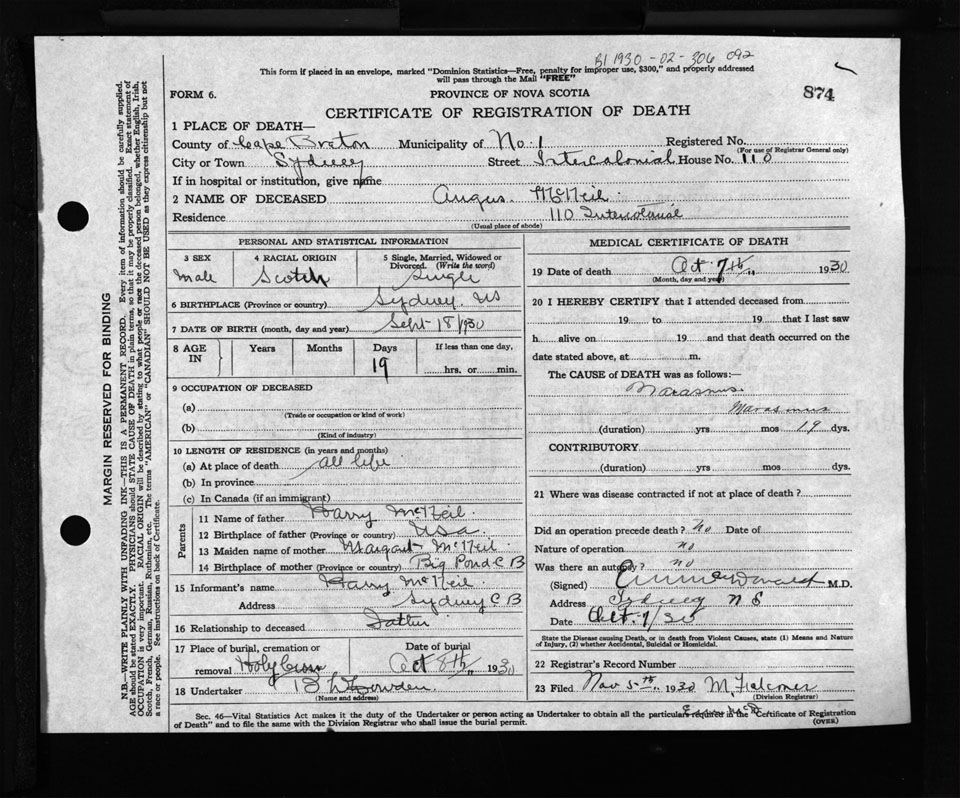 B1 1930-02-306 092
This form if placed in an envelope, marked "Dominion Statistics—Free, penalty for improper use, $300," and properly addressed
will pass through the Mail "FREE"
FORM 6. PROVINCE OF NOVA SCOTIA 874
CERTIFICATE OF REGISTRATION OF DEATH
1 PLACE OF DEATH—
County of Cape Breton Municipality of No. 1 Registered No.
(For use of Registrar General only)
City or Town Sydney Street Intercolonial House No. 110
If in hospital or institution, give name
2 NAME OF DECEASED Angus McNeil
Residence 110 Intercolonial
(Usual place of abode)
PERSONAL AND STATISTICAL INFORMATION
3 SEX 4 RACIAL ORIGIN 5 Single, Married, Widowed or
Divorced. (Write the word)
male Scotch Single
6 BIRTHPLACE (Province or country) Sydney. NS
7 DATE OF BIRTH (month, day and year) Sept 18/1930
8 AGE IN Years Months Days If less than one day,
19 hrs. or min.
9 OCCUPATION OF DECEASED
(a)
(Trade or occupation or kind of work)
(b)
(Kind of industry)
10 LENGTH OF RESIDENCE (in years and months)
(a) At place of death all life
(b) In province
(c) In Canada (if an immigrant)
Parents
11 Name of father Harry McNeil
12 Birthplace of father (Province or country) USA
13 Maiden name of mother Margaret McNeil
14 Birthplace of mother (Province or country) Big Pond C B
15 Informant's name Harry McNeil
Address Sydney C B
16 Relationship to deceased Father
17 Place of burial, cremation or Date of burial
removal Holy Cross Oct 8th, 1930
18 Undertaker
(Name and address)
MEDICAL CERTIFICATE OF DEATH
19 Date of death Oct 7th, 1930
(Month, day and year)
20 I HEREBY CERTIFY that I attended deceased from
19 to 19 that I last saw
h alive on 19 and that death occurred on the
date stated above, at m.
The CAUSE of DEATH was as follows:—
Marasmus
Marasmus
(duration) yrs mos 19 dys.
CONTRIBUTORY
(duration) yrs mos dys.
21 Where was disease contracted if not at place of death?
Did an operation precede death? no Date of
Nature of operation no
Was there an autopsy? no
(Signed) M.D.
Address Sydney N S
Date Oct. 7/30
State the Disease causing Death, or in death from Violent Causes, state (1) Means and Nature
of Injury, (2) whether Accidental, Suicidal or Homicidal.
22 Registrar's Record Number
23 Filed Nov 5th, 1930 M. Falconer
(Division Registrar)
Sec. 46—Vital Statistics Act makes it the duty of the Undertaker or person acting as Undertaker to obtain all the particulars required in the Certificate of Registration
of Death" and to file the same with the Division Registrar who shall issue the burial permit. (OVER)
MARGIN RESERVED FOR BINDING
N.B.—WRITE PLAINLY WITH UNFADING INK—THIS IS A PERMANENT RECORD. Every item of information should be carefully supplied.
AGE should be stated EXACTLY. PHYSICIANS should STATE CAUSE OF DEATH in plain terms, so that it may be properly classified. Exact statement of
OCCUPATION is very important. RACIAL ORIGIN will be described by stating to what people or race the deceased person belonged, whether English, Irish,
Scotch, French, German, Russian, Ruthenian, etc. The terms "AMERICAN" or "CANADIAN" SHOULD NOT BE USED as they express citizenship but not
a race or people. See instructions on back of Certificate.